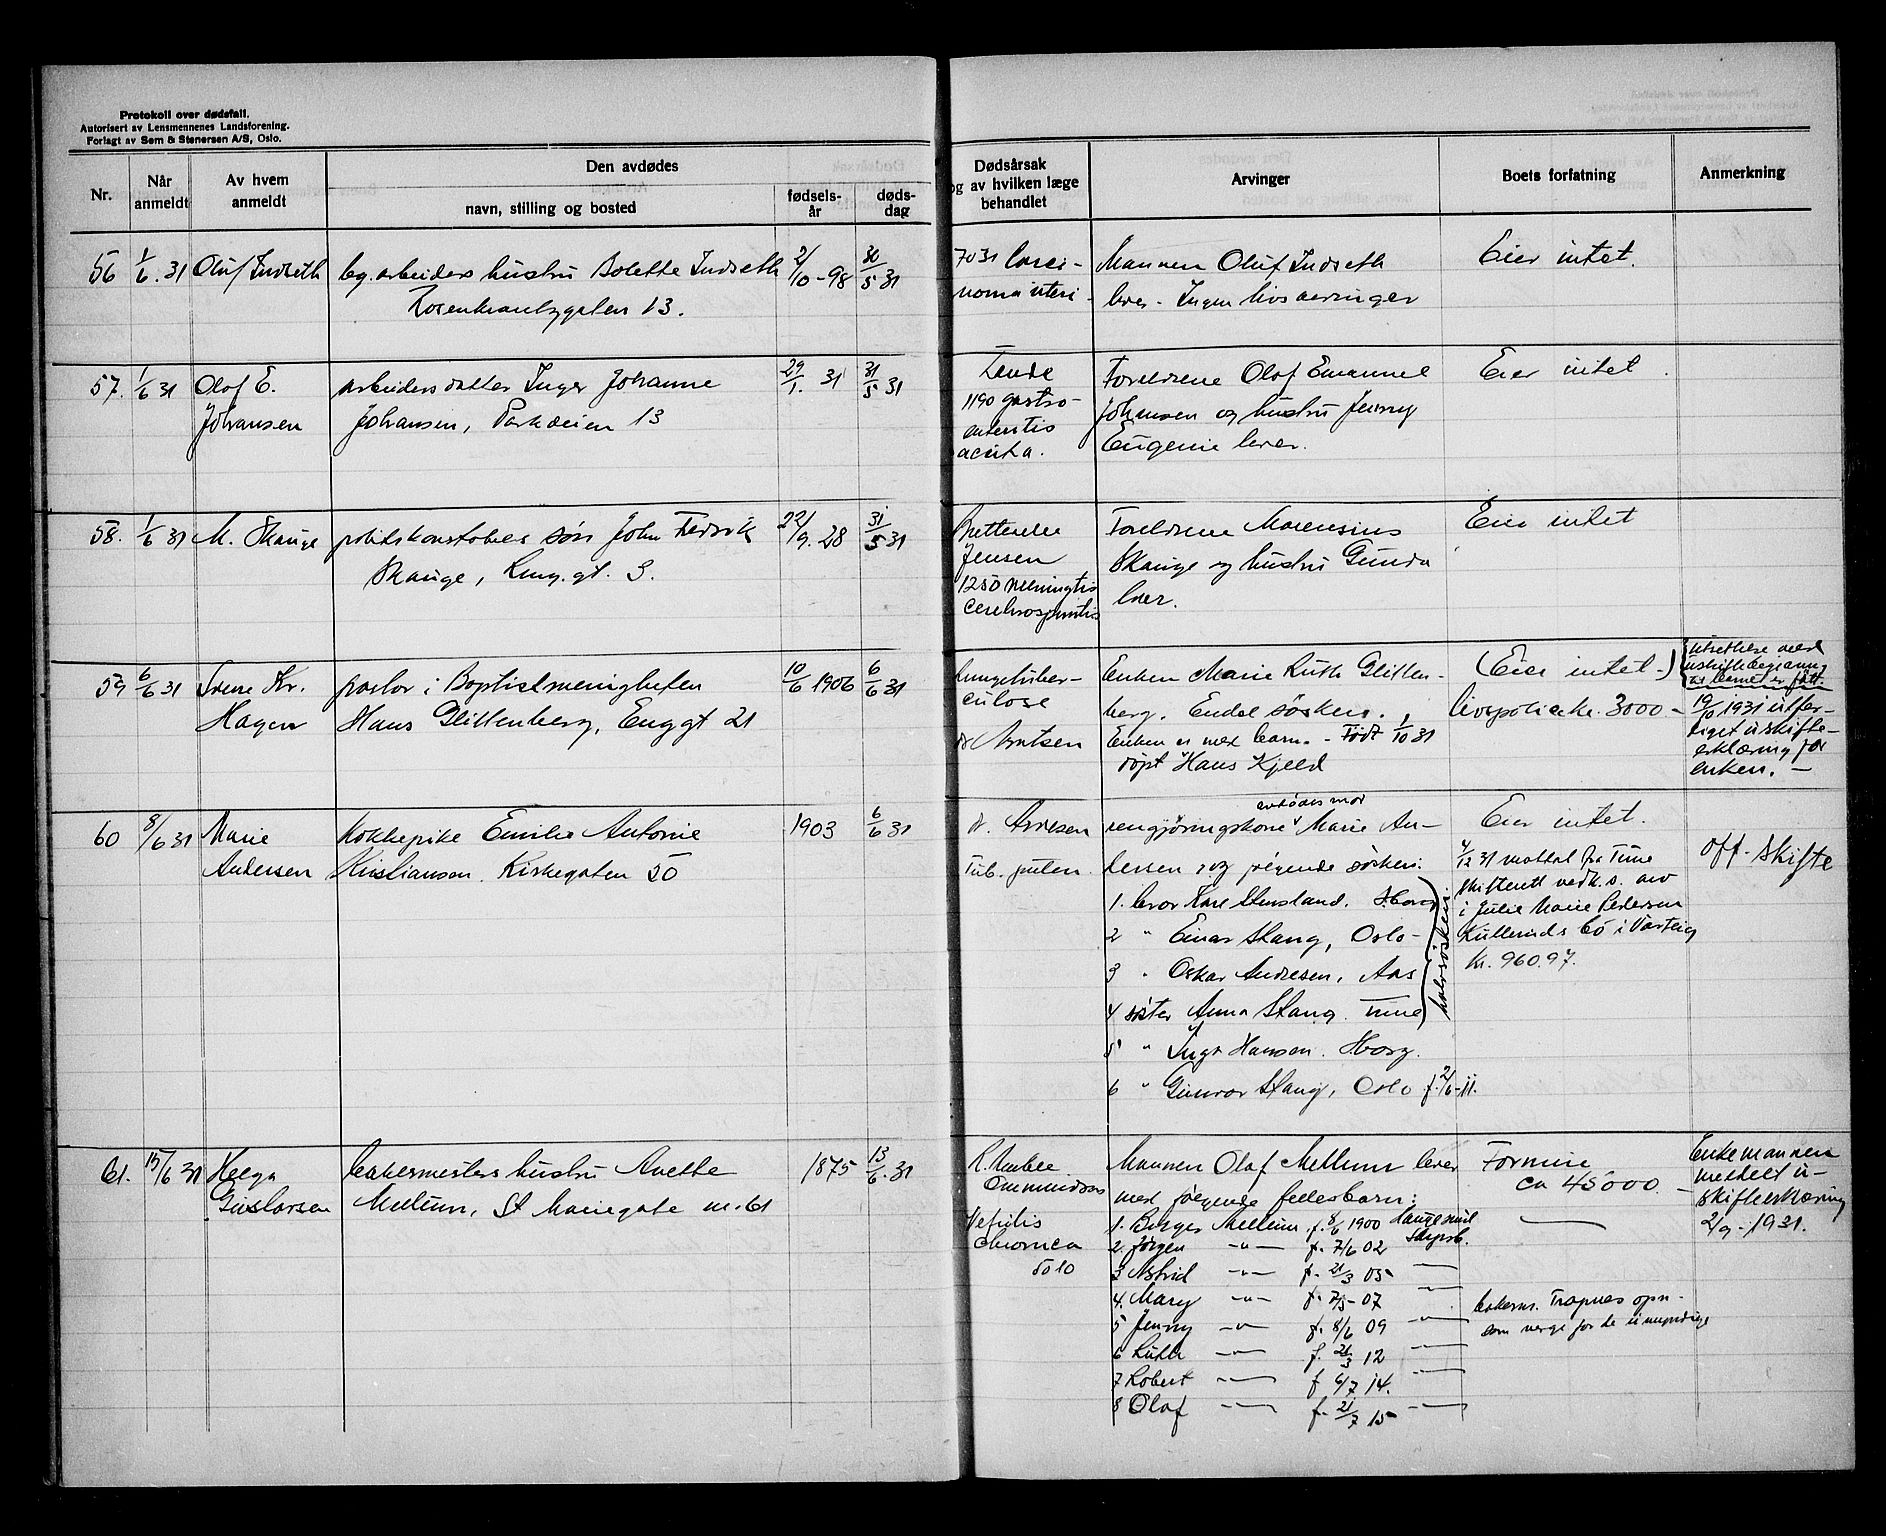 Protokoll over dødsfall.
Autorisert av Lensmennenes Landsforening.
Forlagt av Sem & Stenersen A/S, Oslo.
Nr.
Når anmeldt
Av hvem anmeldt
Den avdødes
navn, stilling og bosted
fødsels-år
døds-dag
Dødsårsak
og av hvilken læge
behandlet
Arvinger
Boets forfatning
Anmerkning
56 1/6.31 Oluf Indseth
bg.arbeiders hustru Bolette Indseth
Rosenkrantzgaten 13.
2/10-98 30/5 31
7031 Carci-
noma uteri
Mannen Oluf Indseth
lever - Ingen livsarvinger
Eier intet.
57. 1/6 31 Olaf E.
Johansen
arbeiders datter Inger Johanne
Johansen, Parkveien 13
29/1. 31 31/5 31
1190 gastro-
enteritis
acuta.
Foreldrene Olaf Emanuel
Johansen og hustru Jenny
Eugenie lever.
Eier intet.
58. 1/6 31 M. Skauge
politikonstabels søn John Fredrik
Skauge, Kong.gt. 3.
22/9.28 31/5 31
Jensen
1250 Meningitis
cerebrospinalis
Foreldrene Marensius
Skauge og hustru Gunda
lever.
Eier intet
59 6/6 31 Sverre Kr.
Hagen
pastor i Baptistmenigheten
Hans Glittenberg, Enggt 21
10/6 1906 6/6 31
Lungetuber-
culose
dr Arntsen
Enken Marie Ruth Glitten-
berg. Endel søsken.
Enken er med barn. - Født 1/10 31
døpt Hans Kjeld
(Eier intet-)
livspolice kr. 3000.-
utsettelse med
uskiftebegjæring
til barnet er født.
19/10 1931 utfer-
diget uskifte-
erklæring for
enken. -
60 8/6 31 Marie
Andersen
Kokkepike Emilie Antonie
Kristiansen. Kirkegaten 50
1903 6/6 31
dr. Andresen
Tub. pulm.
avdødes mor
rengjøringskone Marie An-
dersen og følgende søsken:
1. bror Kåre Stensland. Skborg
2 " Einar Stang, Oslo-
3 " Oskar Andresen, Aas
4 søster Anna Stang. Tune
5 " Inga Hansen. Skborg.
6 " Gunvor Stang, Oslo f. 2/6-11.
halvsøsken
Eier intet.
4/12 31 mottat fra Tune
skifterett vedk. s. arv
i Julie Marie Pedersen
Kulleruds bo i Varteig
kr. 960.97.
Off. skifte
61. 15/6 31 Helga
Gustavsen
bakermesters hustru Anette
Mellum, St Mariegate nr. 61
1875 13/6.31
Ommundsen
Nefritis
chronica
5010
Mannen Olaf Mellum lever
med følgende fellesbarn:
1. Birger Mellum f. 8/6 1900 Haugesund
2. Jørgen -"- f. 7/6 02 Skpsb.
3 Astrid -"- f. 21/3 05 -
4. Mary -"- f. 7/5-07 -
5 Jenny -"- f. 8/6 09 -"-
6 Ruth -"- f. 21/3 12 -
7 Robert -"- f 6/7 14. -
8 Olaf -"- f. 21/7 15 -
Formue
ca 45000.-
bakerm. Trapnes opn.
som verge for de umyndige
Enkemannen
meddelt u-
skifteerklæring
2/9-1931.